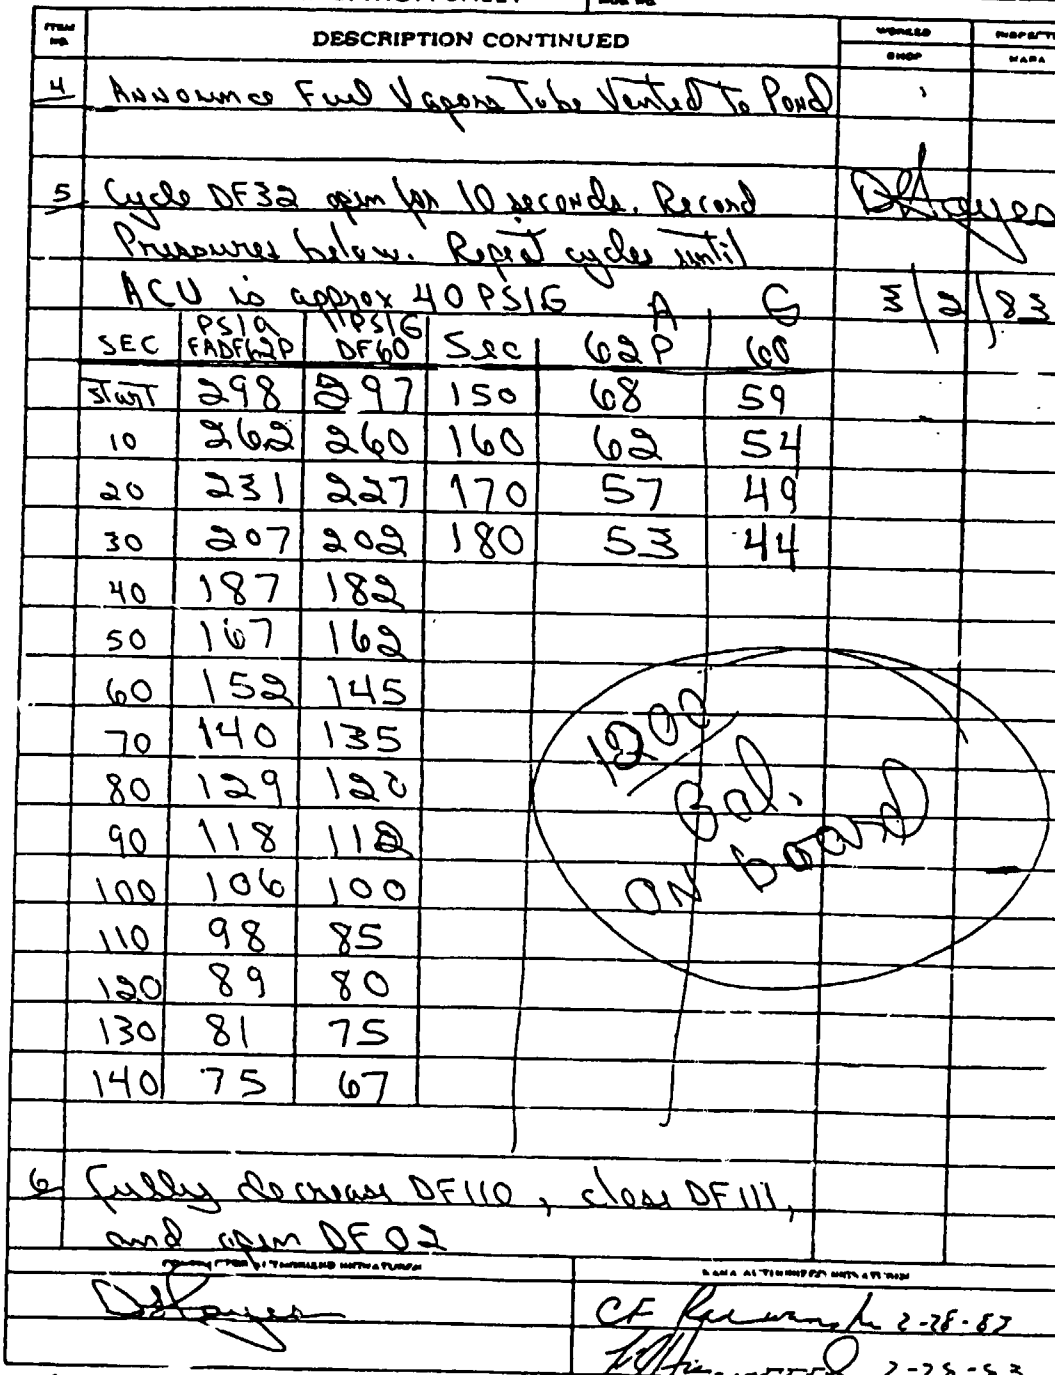 ITEM NO. DESCRIPTION CONTINUED WORKED SHOP
4 Announce Fuel Vapors To be Vented To Pond
5 Cycle DF32 open for 10 seconds. Record
Pressures below. Repeat cycles until
ACU is approx 40 PSIG A G 3/2/83
SEC PSIA FADF62P PSIG DF60 Sec 62P 60
start 298 297 150 68 59
10 262 260 160 62 54
20 231 227 170 57 49
30 207 202 180 53 44
40 187 182
50 167 162
60 152 145
70 140 135
80 129 120
90 118 112
100 106 100
110 98 85
120 89 80
130 81 75
140 75 67
1200
Gal.
ON board
6 fully decrease DF110, close DF111,
and open DF02